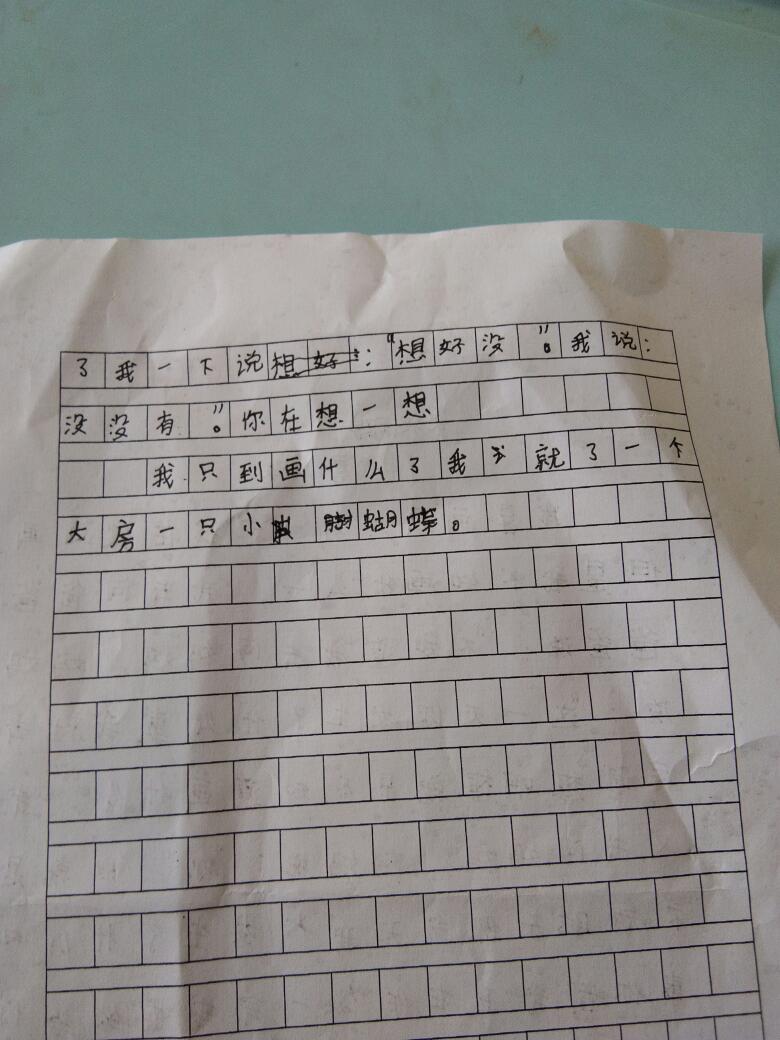 了我一下说：“想好没”。我说：
没没有”。你在想一想
我只到画什么了我就了一个
大房一只小蝴蝶。